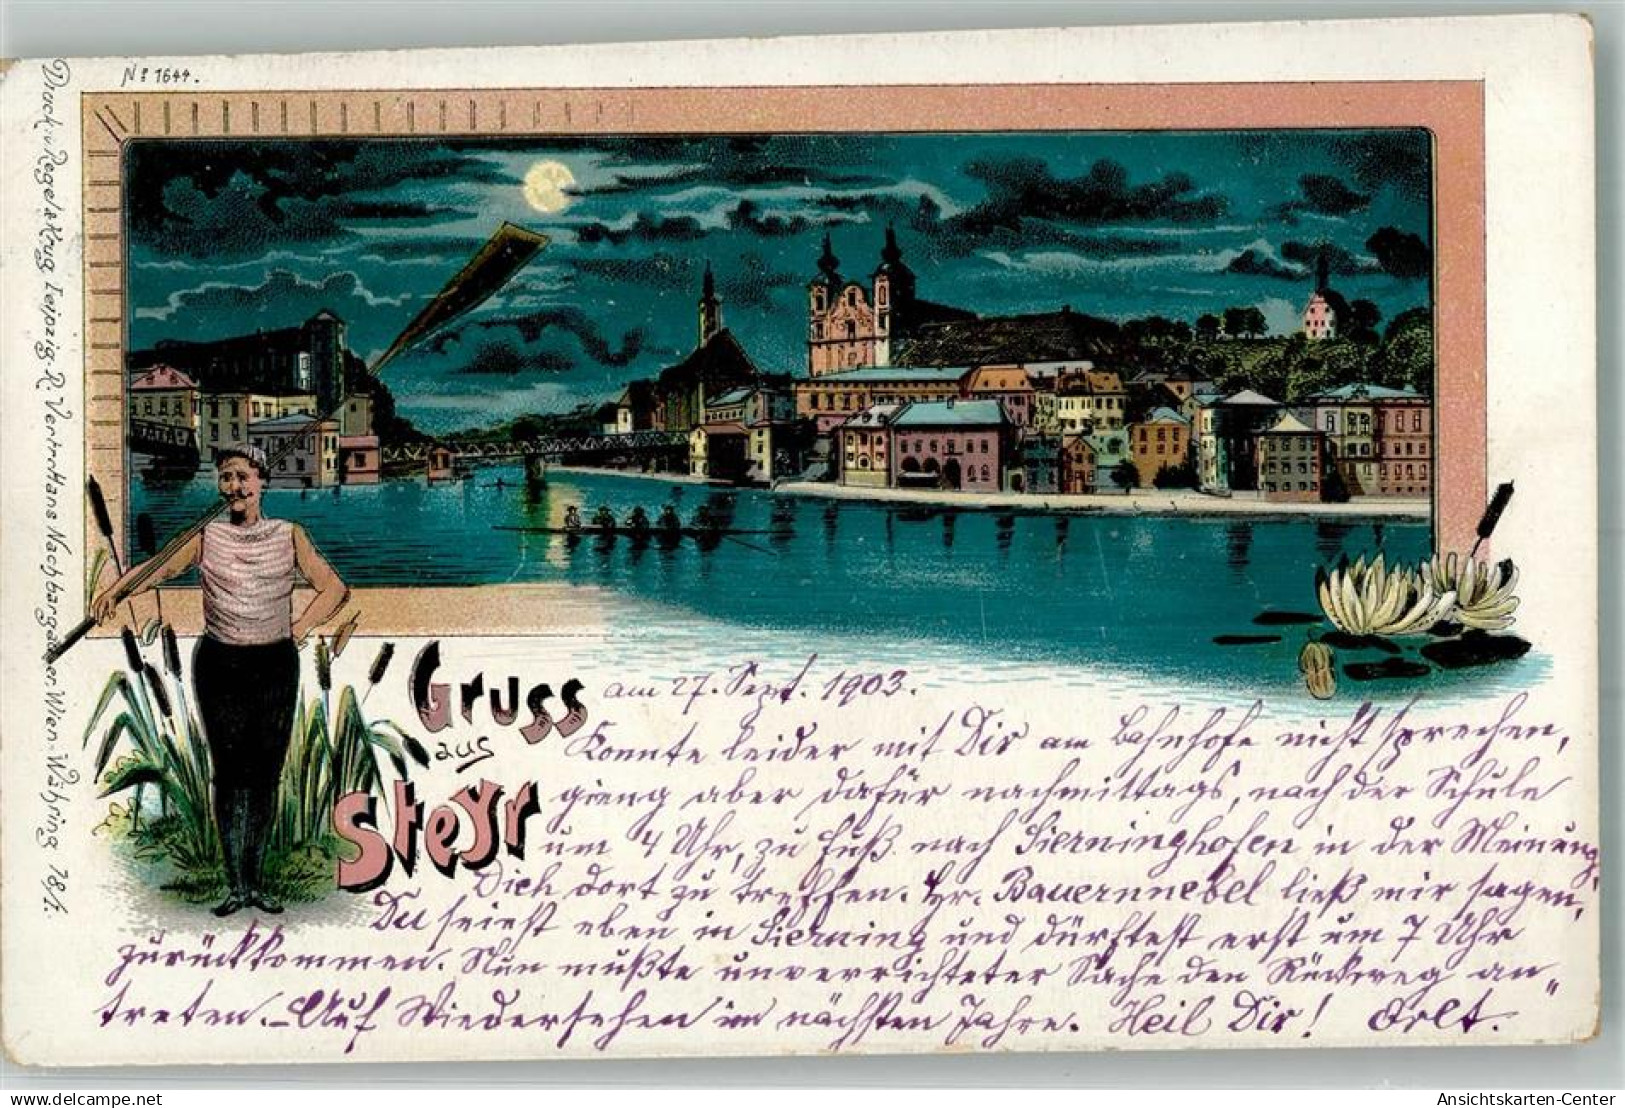 Nº 1644.
Druck v. Regel & Krug, Leipzig-R. Vertr. Hans Nachbargauer Wien-Währing 18/1.
Gruss
aus
Steyr
am 27. Sept. 1903.
Konnte leider mit Dir am Bahnhofe nicht sprechen,
gieng aber dafür nachmittags, nach der Schule
um 4 Uhr, zu Fuß nach Sierninghofen in der Meinung,
Dich dort zu treffen. Hr. Bauernnebel ließ mir sagen,
Du seiest eben in Sierning und dürftest erst um 7 Uhr
zurückkommen. Nun mußte unverrichteter Sache den Rückweg an„
treten. – Auf Wiedersehen im nächsten Jahre. Heil Dir!
Ansichtskarten-Center